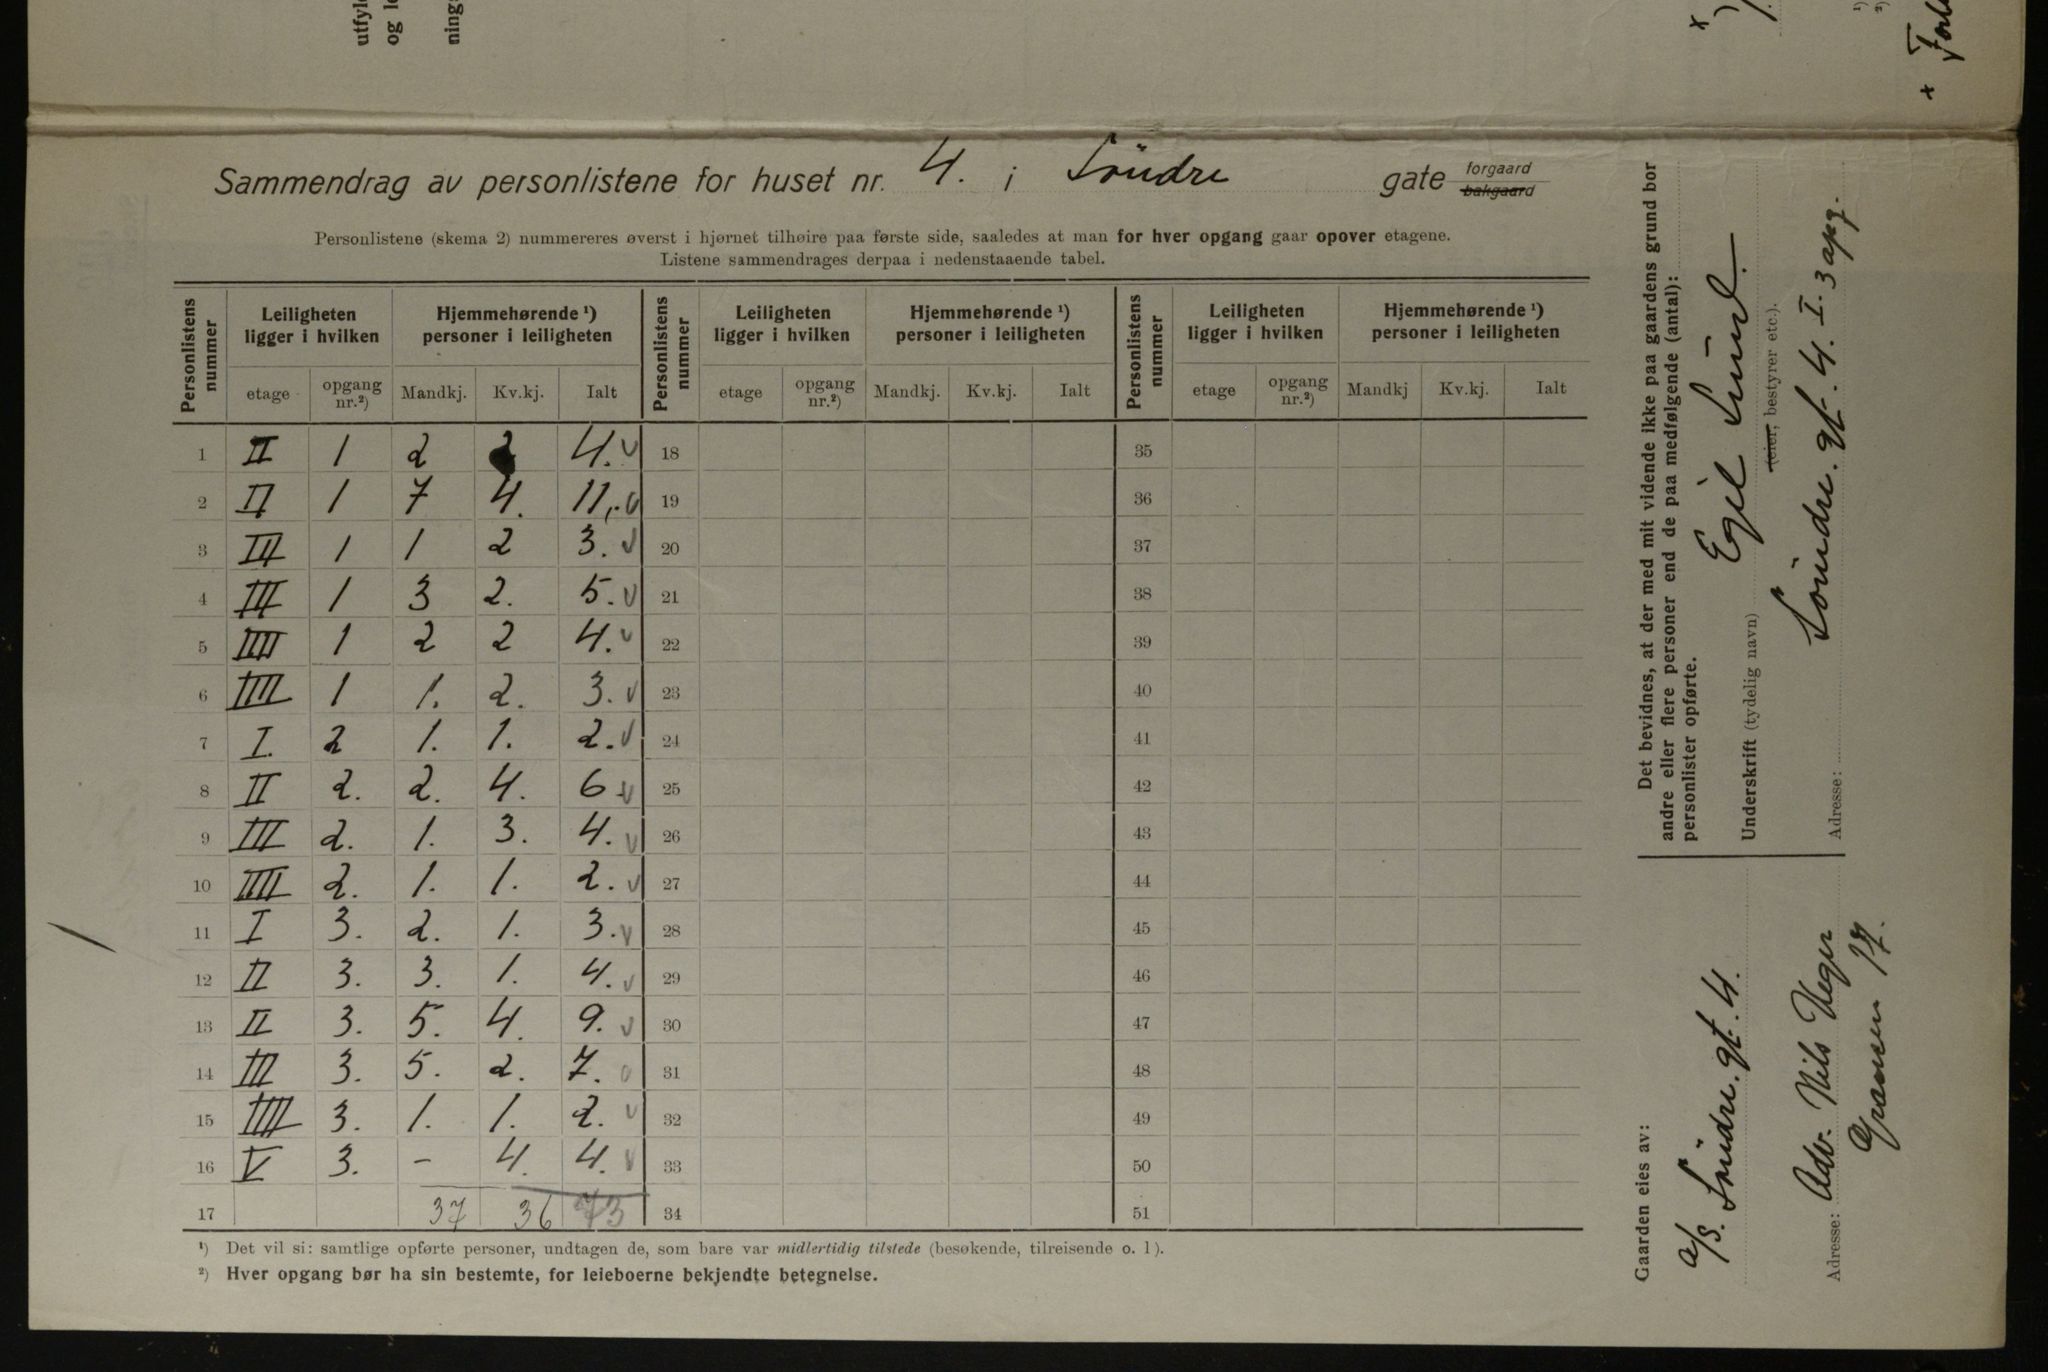 utfyl
og le
ning
x
)
1)
2)
x Forl
Sammendrag av personlistene for huset nr. 4. i Söndre gate forgaard bakgaard
Personlistene (skema 2) nummereres øverst i hjørnet tilhøire paa første side, saaledes at man for hver opgang gaar opover etagene.
Listene sammendrages derpaa i nedenstaaende tabel.
Personlistens nummer | Leiligheten ligger i hvilken | Hjemmehørende ¹) personer i leiligheten | Personlistens nummer | Leiligheten ligger i hvilken | Hjemmehørende ¹) personer i leiligheten | Personlistens nummer | Leiligheten ligger i hvilken | Hjemmehørende ¹) personer i leiligheten
etage | opgang nr.²) | Mandkj. | Kv.kj. | Ialt | etage | opgang nr.²) | Mandkj. | Kv.kj. | Ialt | etage | opgang nr.²) | Mandkj | Kv.kj. | Ialt
1 II 1 2 2 4. v 18 35
2 II 1 7 4. 11. 19 36
3 III 1 1 2 3. v 20 37
4 III 1 3 2. 5. v 21 38
5 IIII 1 2 2 4. v 22 39
6 IIII 1 1. 2. 3. v 23 40
7 I. 2 1. 1. 2. v 24 41
8 II 2. 2. 4. 6 v 25 42
9 III 2. 1. 3. 4. v 26 43
10 IIII 2. 1. 1. 2. v 27 44
11 I 3. 2. 1. 3. v 28 45
12 II 3. 3. 1. 4. v 29 46
13 II 3. 5. 4. 9. v 30 47
14 III 3. 5. 2. 7. 31 48
15 IIII 3. 1. 1. 2. v 32 49
16 V 3. – 4. 4. v 33 50
17 37 36 73 34 51
¹) Det vil si: samtlige opførte personer, undtagen de, som bare var midlertidig tilstede (besøkende, tilreisende o. l).
²) Hver opgang bør ha sin bestemte, for leieboerne bekjendte betegnelse.
Det bevidnes, at der med mit vidende ikke paa gaardens grund bor
andre eller flere personer end de paa medfølgende (antal):
personlister opførte.
Egil Lund.
Underskrift (tydelig navn)
(eier, bestyrer etc.).
Adresse: Söndre. gt. 4. I. 3 opg.
Gaarden eies av:
a/s. Söndre. gt. 4.
Adresse: Adv. Nils Heger
Grænsen 17.